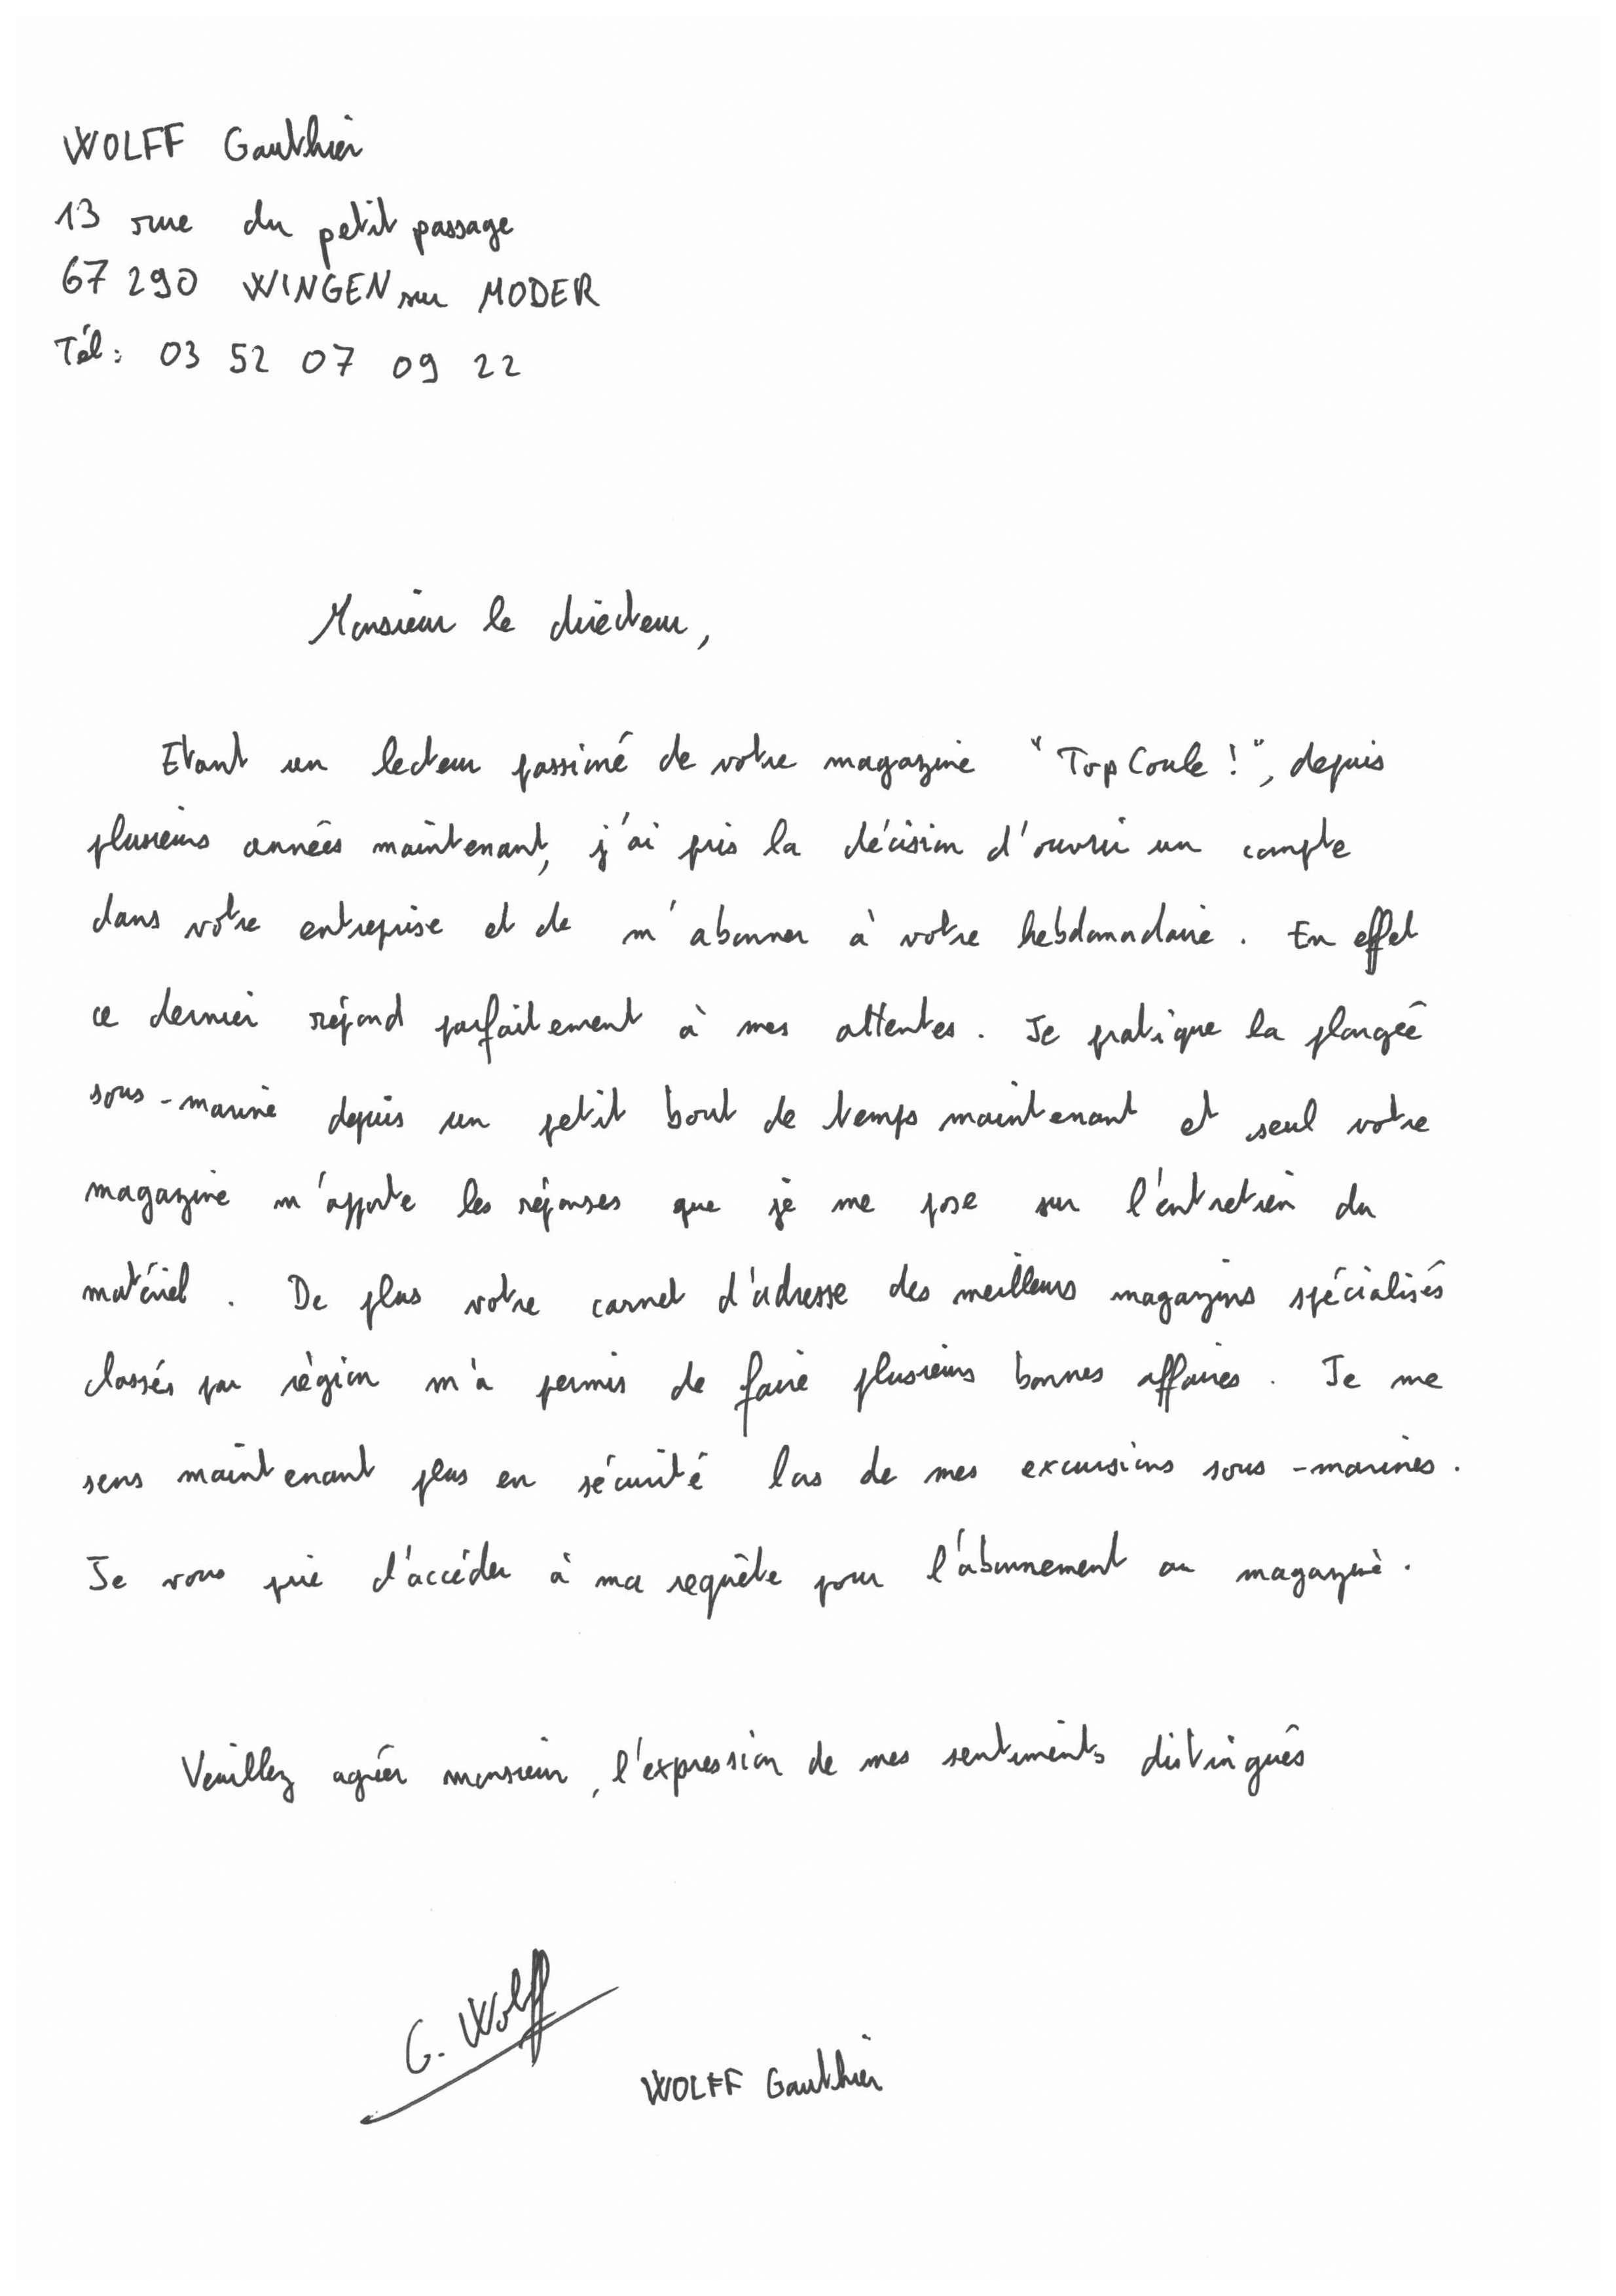 WOLFF Gauthier
13 rue du petit passage
67 290 WINGEN sur MODER
Tél : 03 52 07 09 22
Monsieur le directeur,
Etant un lecteur passioné de votre magazine "Top Coule !", depuis
plusieurs années maintenant, j'ai pris la décision d'ouvrir un compte
dans votre entreprise et de m'abonner à votre hebdomadaire. En effet
ce dernier répond parfaitement à mes attentes. Je pratique la plongée
sous-marine depuis un petit bout de temps maintenant et seul votre
magazine m'apporte les réponses que je me pose sur l'entretien du
matériel. De plus votre carnet d'adresse des meilleurs magazins spécialisés
classés par région m'a permis de faire plusieurs bonnes affaires. Je me
sens maintenant plus en sécurité lors de mes excursions sous-marines.
Je vous prie d'accéder à ma requête pour l'abonnement au magazine.
Veuillez agréer monsieur, l'expression de mes sentiments distingués
G. Wolff
WOLFF Gauthier